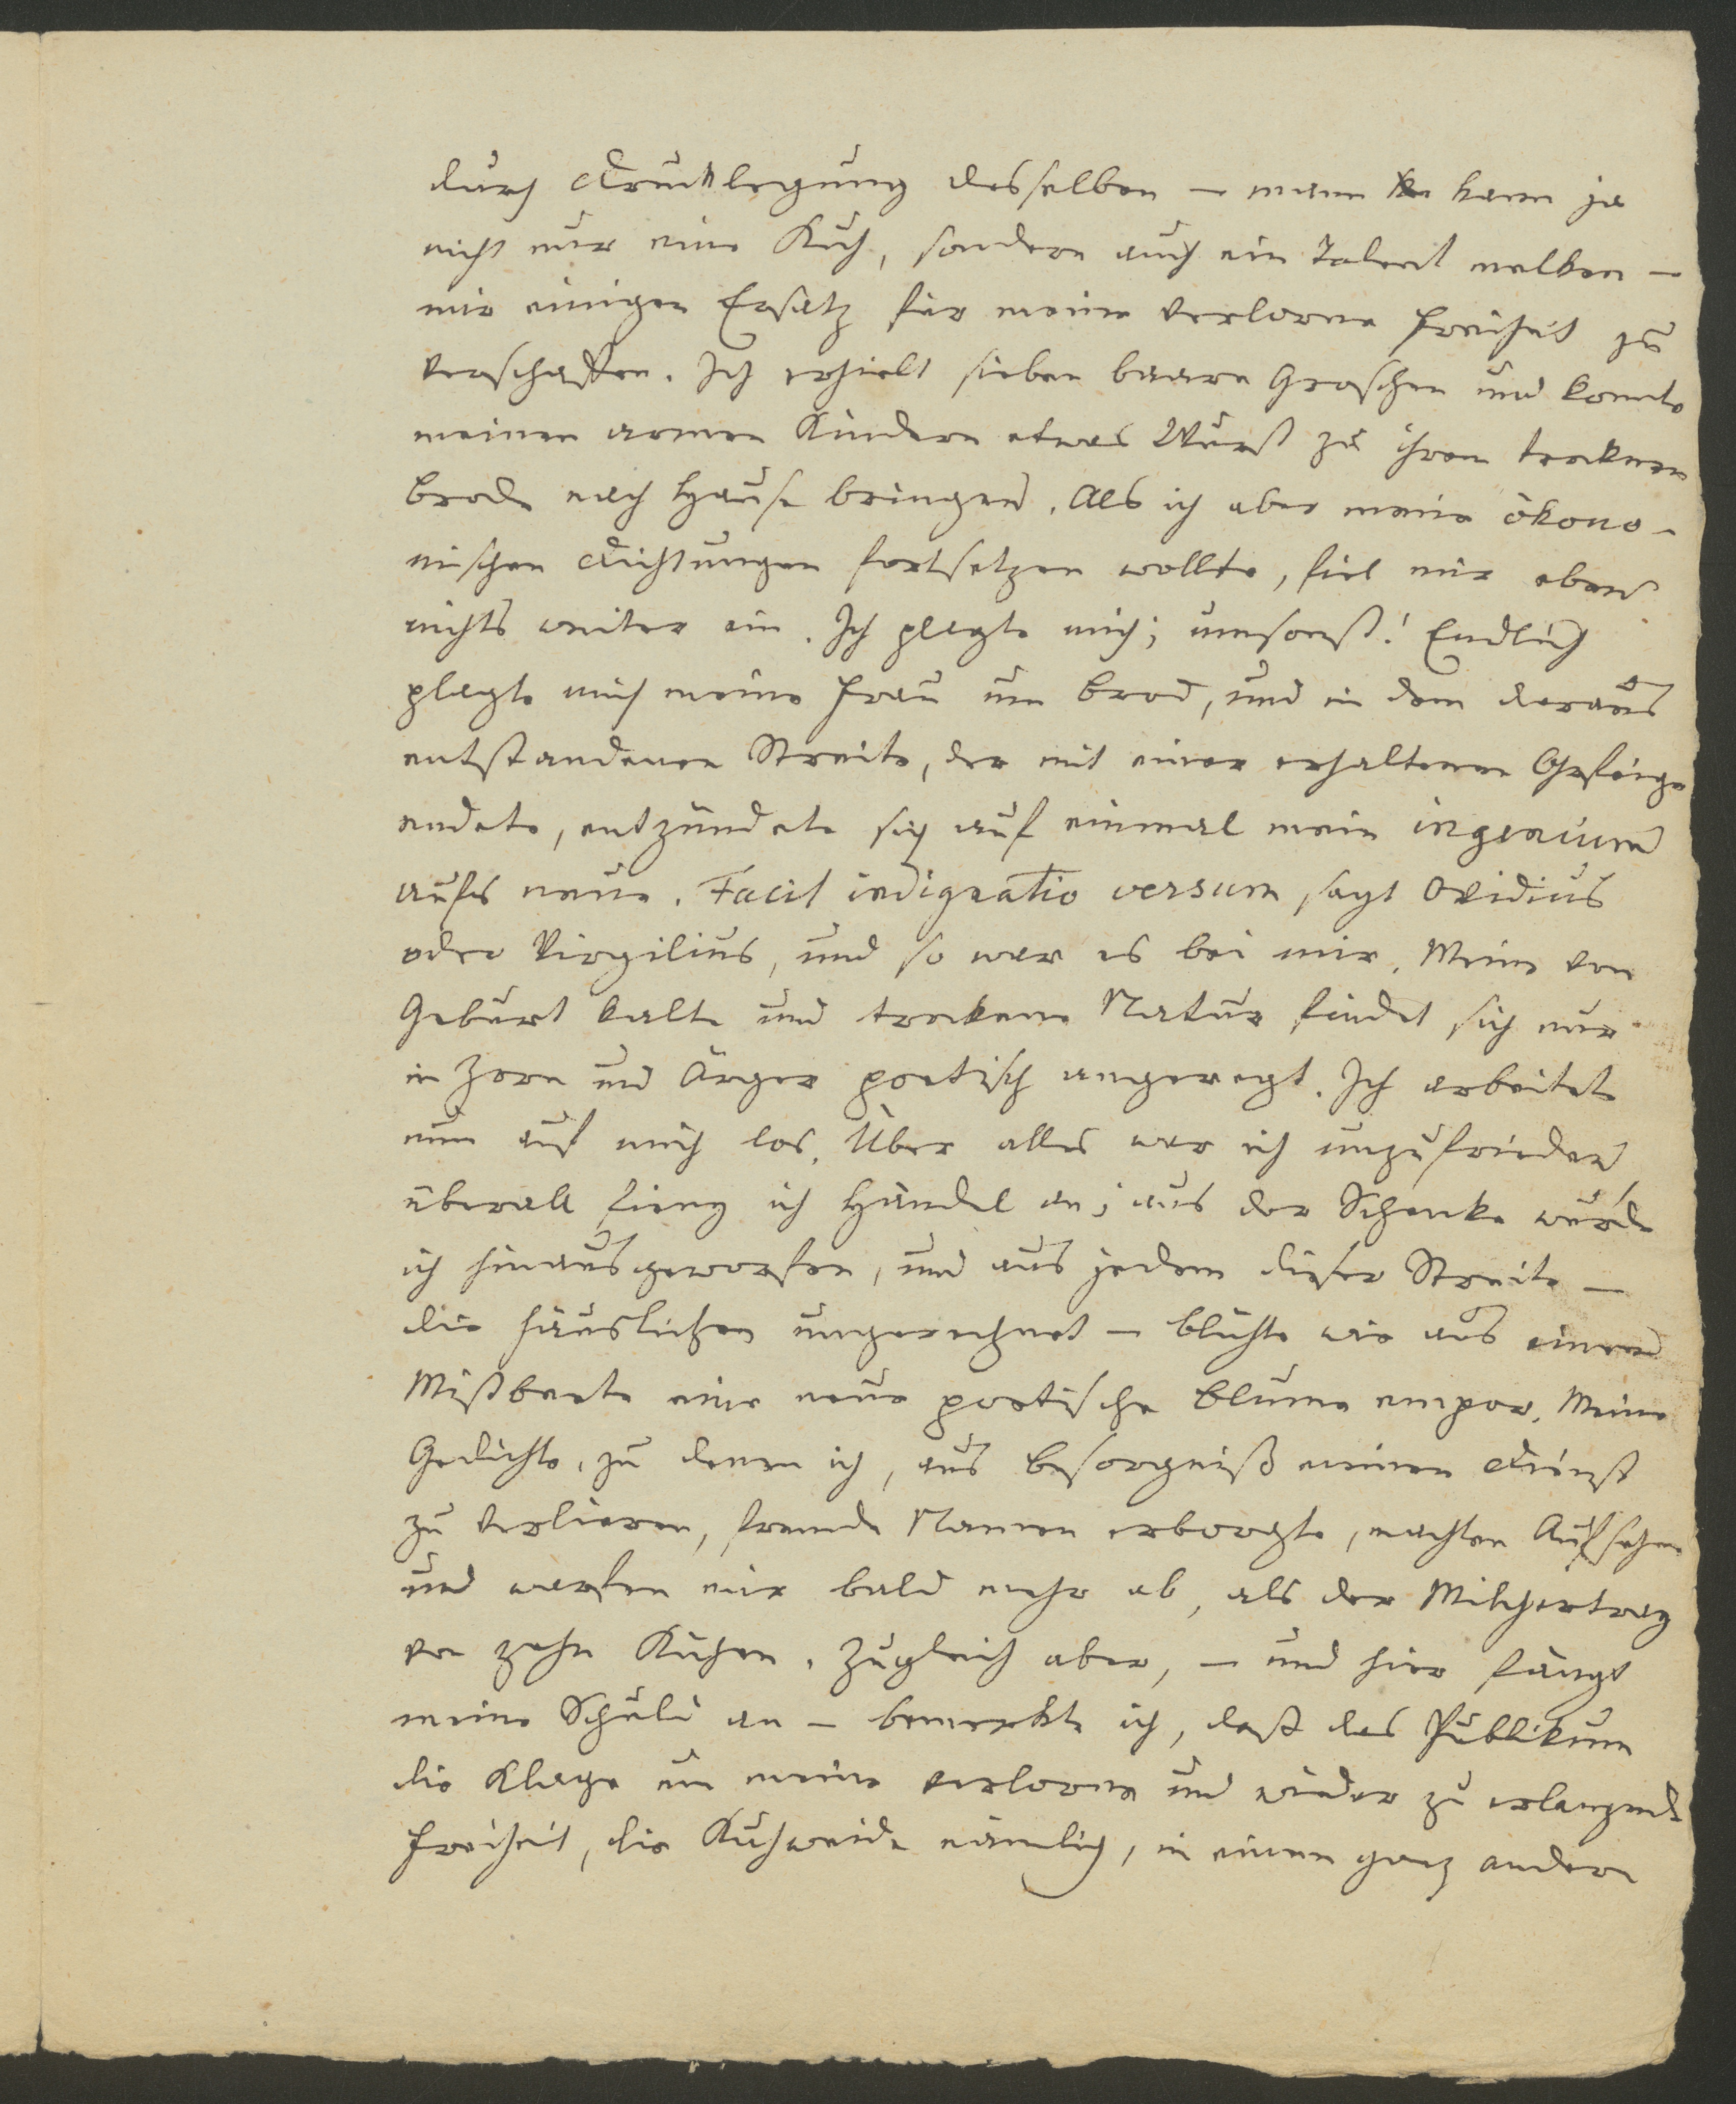 durch Drucklegung desselben – mann kan kann ja
nicht nur eine Kuh, sondern auch ein Talent melken –
mir einigen Ersatz für meine verlorne Freiheit zu
verschaffen. Ich erhielt sieben baare Groschen und konnte
meinen armen Kindern etwas Wurst zu ihrem trocknen
Brode nach Hause bringen. Als ich aber meine ökono-
mischen Dichtungen fortsetzen wollte, fiel mir eben
nichts weiter ein. Ich plagte mich; umsonst! Endlich
plagte mich meine Frau um Brod, und in dem daraus
entstandenen Streite, der mit einer erhaltenen Ohrfeige
endete, entzündete sich auf einmal mein ingenium
aufs neue. Facit indignatio versum, sagt Ovidius
oder Virgilius, und so war es bei mir. Meine von
Geburt kalte und trockene Natur findet sich nur
in Zorn und Ärger poetisch angeregt. Ich arbeitete
nun auf mich los. Über alles war ich unzufrieden
überall fieng ich Händel an; aus der Schenke wurde
ich hinausgeworfen, und aus jedem dieser Streite –
die häuslichen ungerechnet – blühte wie aus einem
Mistbeete eine neue poetische Blume empor. Meine
Gedichte, zu denen ich, aus Besorgniß meinen Dienst
zu verlieren, fremde Namen erborgte, machten Aufsehen
und warfen mir bald mehr ab, als der Milchertrag
von zehn Kühen. Zugleich aber, – und hier fängt
meine Schuld an – bemerkte ich, daß das Publikum
die Klage um meine verlorne und wieder zu erlangende
Freiheit, die Kuhweide nämlich, in einem ganz andern